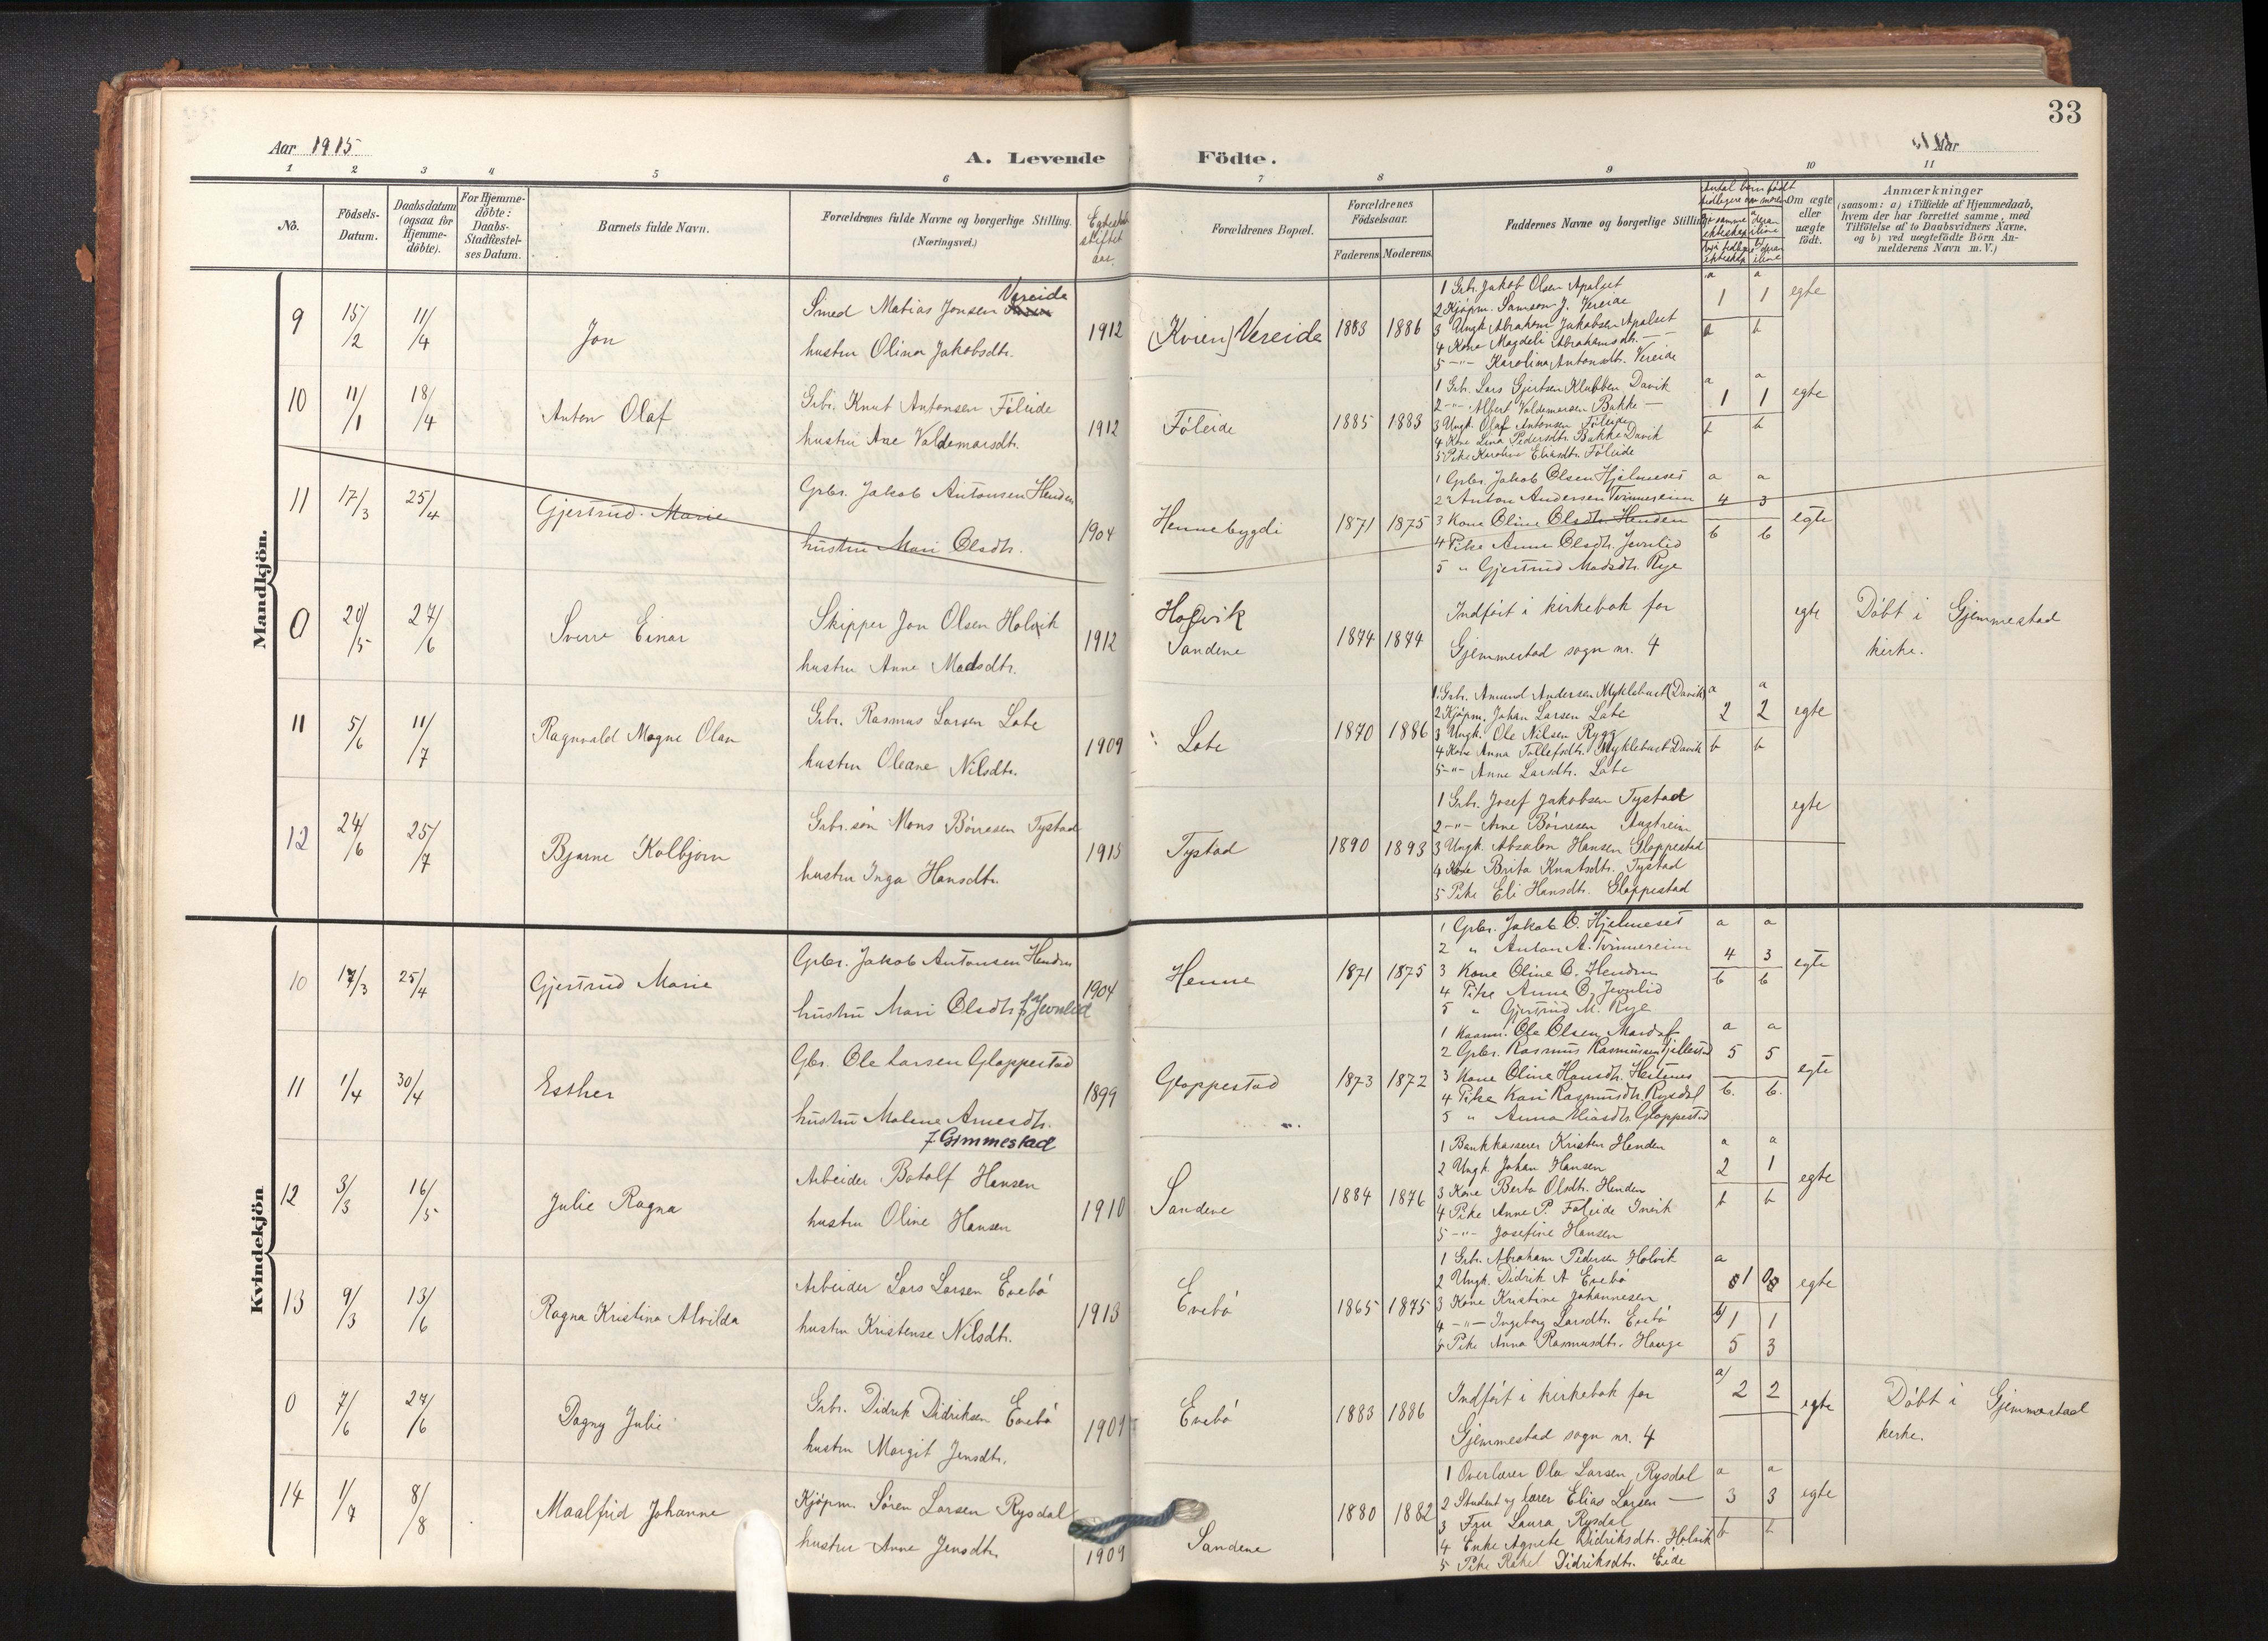 33
Aar 1915
A. Levende Födte.
Aar
1 2 3 4 5 6 7 8 9 10 11
No.
Födsels-Datum.
Daabsdatum (ogsaa for Hjemme-döbte).
For Hjemme-döbte: Daabs-Stadfæstel-ses Datum.
Barnets fulde Navn.
Forældrenes fulde Navne og borgerlige Stilling. (Næringsvei.)
Forældrenes Bopæl.
Forældrenes Födselsaar.
Faderens Moderens
Faddernes Navne og borgerlige Stilling
Om ægte eller uægte födt.
Anmærkninger
(saasom: a) i Tilfælde af Hjemmedaab, hvem der har forrettet samme, med Tilföielse af to Daabsvidners Navne, og b) ved uægtefödte Börn An-melderens Navn m. V.)
Mandkjön.
9 15/2 11/4 Jon
Smed Matias Jonsen Vereide
hustru Olina Jakobsdtr.
1912 (Kvien) Vereide 1883 1886
1 Grb. Jakob Olsen Apalset
2 Kjöpm. Samson J. Vereide
3 Ungk. Abraham Jakobsen Apalset
4 Kone Magdeli Abrahamsdtr. —
5 -"- Karolina Antonsdtr. Vereide
a 1 a 1 b b egte
10 11/1 18/4 Anton Olaf
Grb. Knut Antonsen Föleide
hustru Ane Valdemarsdtr.
1912 Föleide 1885 1883
1 Grb. Lars Gjertsen Klubben Davik
2 -"- Albert Valdemarsen Bakke —
3 Ungk. Olaf Antonsen Föleide
4 Kone Lina Pedersdtr. Bakke Davik
5 Pike Karoline Eliasdtr. Föleide
a 1 a 1 b b egte
11 17/3 25/4 Gjertrud Marie
Grbr. Jakob Antonsen Henden
hustru Mari Olsdtr.
1904 Hennebygdi 1871 1875
1 Grbr. Jakob Olsen Hjelmeset
2 " Anton Andersen Tvinnereim
3 Kone Oline Olsdtr. Henden
4 Pike Anna Olsdtr. Jevnlid
5 " Gjertrud Madsdtr. Rye
a 4 a 3 b b egte
0 20/5 27/6 Sverre Einar
Skipper Jon Olsen Holvik
hustru Anne Madsdtr.
1912 Holvik
Sandene 1874 1874
Indfört i kirkebok for
Gjemmestad sogn nr. 4
egte Döbt i Gjemmestad
kirke.
11 5/6 11/7 Ragnvald Magne Olav
Grb. Rasmus Larsen Lote
hustru Oleane Nilsdtr.
1909 Lote 1870 1886
1 Grb. Amund Andersen Myklebust (Davik)
2 Kjöpm. Johan Larsen Lote
3 Ungk. Ole Nilsen Rygg
4 Kone Anna Tollefsdtr. Myklebust Davik
5 -"- Anne Larsdtr. Lote
a 2 a 2 b b egte
12 24/6 25/7 Bjarne Kolbjorn
Grbr.sön Mons Börresen Tystad
hustru Inga Hansdtr.
1915 Tystad 1890 1893
1 Grb. Josef Jakobsen Tystad
2 -"- Arne Börresen Austreim
3 Ungk. Absalon Hansen Gloppestad
4 Kone Brita Knutsdtr. Tystad
5 Pike Eli Hansdtr. Gloppestad
egte
Kvindekjön
10 17/3 25/4 Gjertrud Marie
Grbr. Jakob Antonsen Henden
hustru Mari Olsdtr. f. Jevnlid
1904 Henne 1871 1875
1 Grbr. Jakob O. Hjelmeset
2 " Anton A. Tvinnereim
3 Kone Oline O. Henden
4 Pike Anna O. Jevnlid
5 " Gjertrud M. Rye
a 4 a 3 b b egte
11 1/4 30/4 Esther
Gbr. Ole Larsen Gloppestad
hustru Malene Arnesdtr.
f. Gimmestad
1899 Gloppestad 1873 1872
1 Kaarm. Ole Olsen Mardal
2 Grbr. Rasmus Rasmussen Fjellestad
3 Kone Oline Hansdtr. Hestenes
4 Pike Kari Rasmusdtr. Rysdal
5 " Anna Eliasdtr. Gloppestad
a 5 a 5 b. b. egte
12 3/3 16/5 Julie Ragna
Arbeider Botolf Hansen
hustru Oline Hansen
1910 Sandene 1884 1876
1 Bankkasserer Kristen Henden
2 Ungk. Johan Hansen
3 Kone Berta Olsdtr. Henden
4 Pike Anne P. Föleide Invik
5 -"- Josefine Hansen
a 2 a 1 b b egte
13 9/3 13/6 Ragna Kristina Alvilda
Arbeider Lars Larsen Evebö
hustru Kristense Nilsdtr.
1913 Evebö 1865 1875
1 Grb. Abraham Pedersen Holvik
2 Ungk. Didrik A Evebö
3 Kone Kristine Johannesen
4 -"- Ingeborg Larsdtr. Evebö
5 Pike Anna Rasmusdtr. Hauge
a 1 0 b) 1 1 5 3 egte
0 7/6 27/6 Dagny Julie
Grb. Didrik Didriksen Evebö
hustru Margit Jensdtr.
1909 Evebö 1883 1886
Indfört i kirkebok for
Gjemmestad sogn nr. 4
a) 2 2 egte Döbt i Gjemmestad
kirke.
14 1/7 8/8 Maalfrid Johanne
Kjöpm. Sören Larsen Rysdal
hustru Anne Jensdtr.
1909 Sandene 1880 1882
1 Overlærer Ola Larsen Rysdal
2 Student og lærer Elias Larsen —
3 Fru Laura Rysdal
4 Enke Agnete Didriksdtr. Holvik
5 Pike Rakel Didriksdtr. Eide
a 3 a 3 b b egte